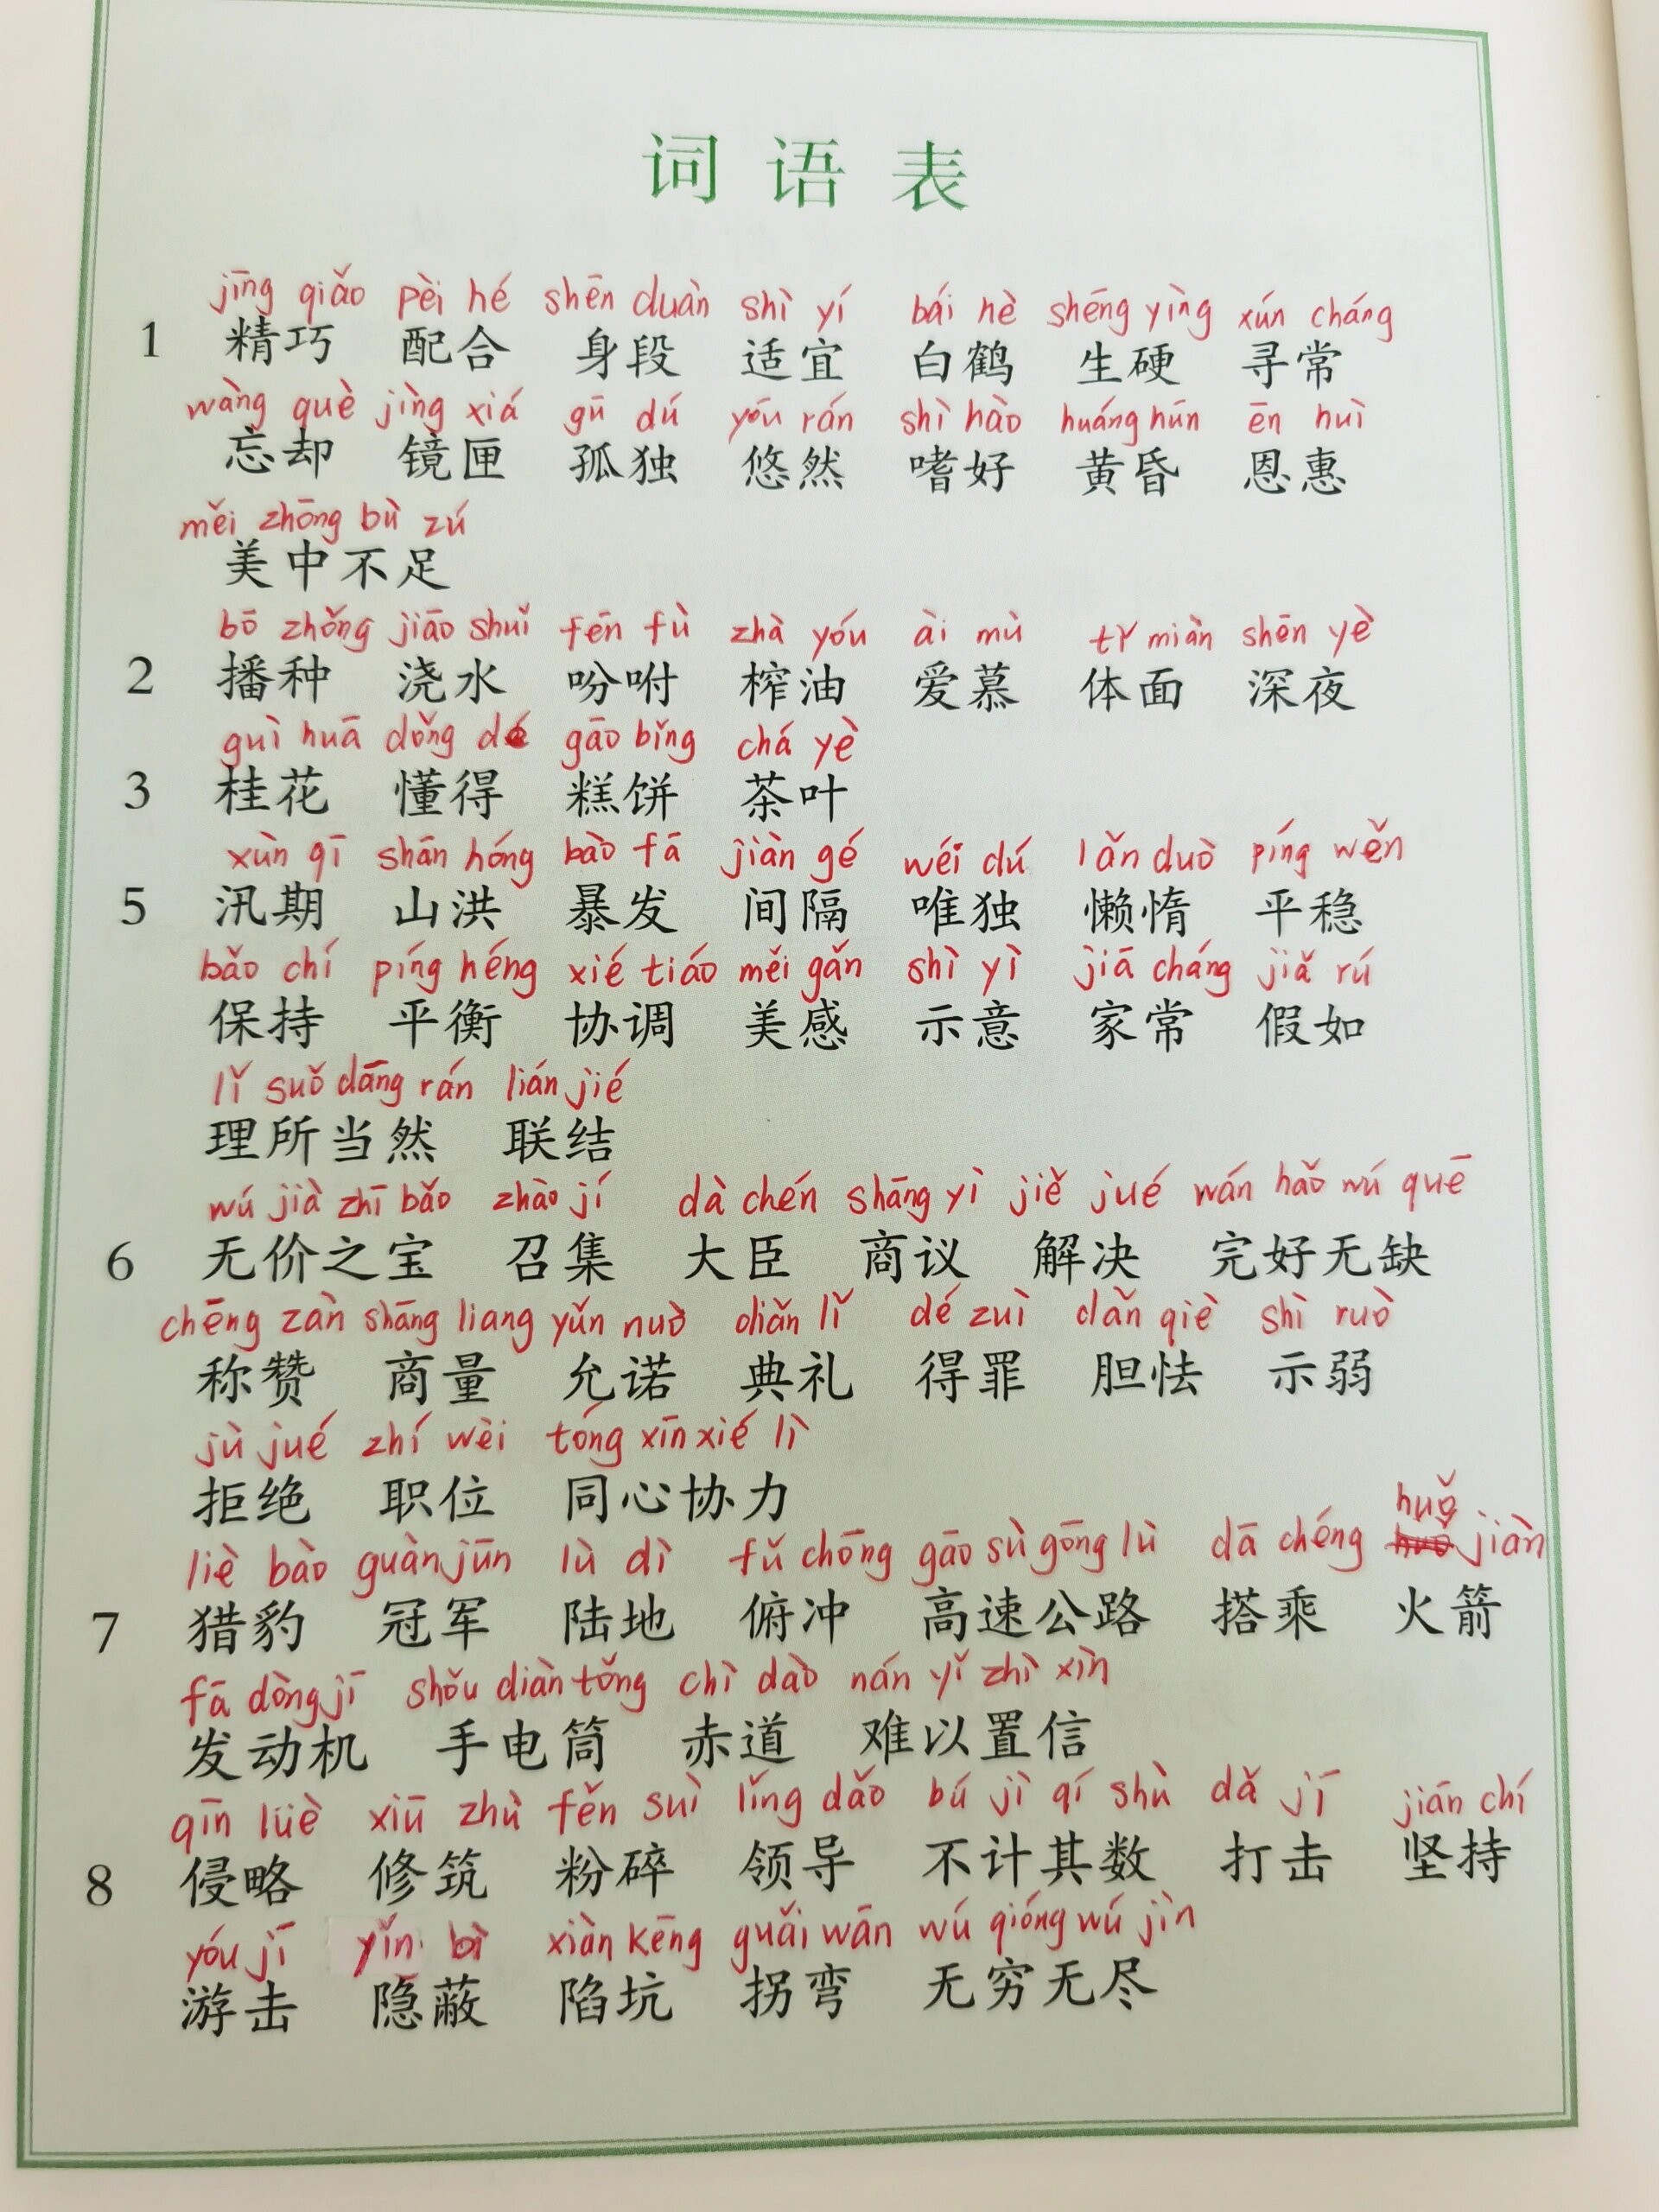 词语表
jīng qiǎo pèi hé shēn duàn shì yí bái hè shēng yìng xún cháng
1 精巧 配合 身段 适宜 白鹤 生硬 寻常
wàng què jìng xiá gū dú yōu rán shì hào huáng hūn ēn huì
忘却 镜匣 孤独 悠然 嗜好 黄昏 恩惠
měi zhōng bù zú
美中不足
bō zhǒng jiāo shuǐ fēn fù zhà yóu ài mù tǐ miàn shēn yè
2 播种 浇水 吩咐 榨油 爱慕 体面 深夜
guì huā dǒng dé gāo bǐng chá yè
3 桂花 懂得 糕饼 茶叶
xùn qī shān hóng bào fā jiàn gé wéi dú lǎn duò píng wěn
5 汛期 山洪 暴发 间隔 唯独 懒惰 平稳
bǎo chí píng héng xié tiáo měi gǎn shì yì jiā cháng jiǎ rú
保持 平衡 协调 美感 示意 家常 假如
lǐ suǒ dāng rán lián jié
理所当然 联结
wú jià zhī bǎo zhào jí dà chén shāng yì jiě jué wán hǎo wú quē
6 无价之宝 召集 大臣 商议 解决 完好无缺
chēng zàn shāng liang yǔn nuò diǎn lǐ dé zuì dǎn qiè shì ruò
称赞 商量 允诺 典礼 得罪 胆怯 示弱
jù jué zhí wèi tóng xīn xié lì
拒绝 职位 同心协力
liè bào guàn jūn lù dì fǔ chōng gāo sù gōng lù dā chéng huǒ jiàn
7 猎豹 冠军 陆地 俯冲 高速公路 搭乘 火箭
fā dòng jī shǒu diàn tǒng chì dào nán yǐ zhì xìn
发动机 手电筒 赤道 难以置信
qīn lüè xiū zhù fěn suì lǐng dǎo bú jì qí shù dǎ jī jiān chí
8 侵略 修筑 粉碎 领导 不计其数 打击 坚持
yóu jī yǐn bì xiàn kēng guǎi wān wú qióng wú jìn
游击 隐蔽 陷坑 拐弯 无穷无尽